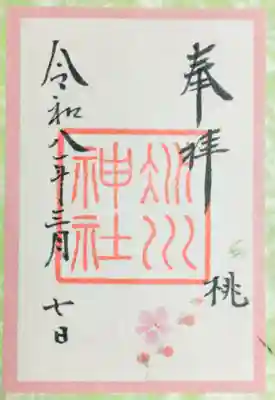 奉拝
桃
氷川
神社
令和八年三月七日